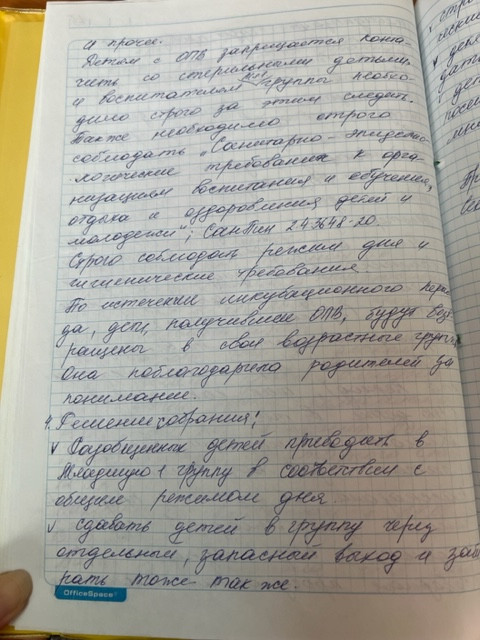 и прочее.
Детям с ОПВ запрещается конта-
чить со стерильными детьми,
и воспитателям групп необхо-
димо строго за этим следить.
Также необходимо строго
соблюдать „Санитарно-эпидемио-
логические требования к орга-
низациям воспитания и обучения,
отдыха и оздоровления детей и
молодежи"; СанПин 2.4.3648-20.
Строго соблюдать режим дня и
гигиенические требования.
По истечении инкубационного перио
да, дети получившие ОПВ, будут воз
ращены в свои возрастные группы
Она поблагодарила родителей за
понимание.
4. Решение собрания:
v Разобщенных детей приводить в
Младшую 1 группу в соответствии с
общим режимом дня
v сдавать детей в группу через
отдельный, запасный выход и заби
рать тоже так же.
OfficeSpace